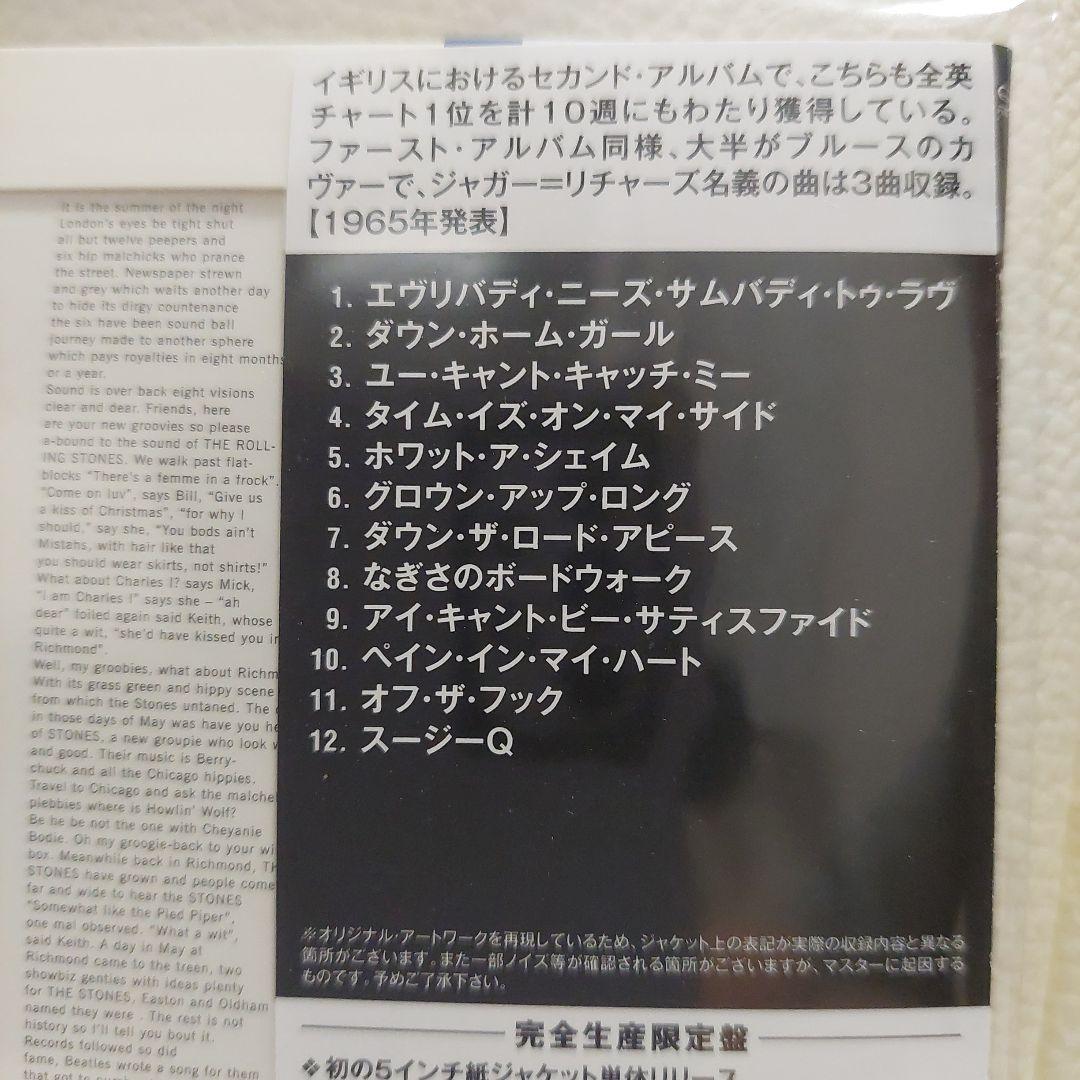 イギリスにおけるセカンド・アルバムで、こちらも全英
チャート1位を計10週にもわたり獲得している。
ファースト・アルバム同様、大半がブルースのカ
ヴァーで、ジャガー=リチャーズ名義の曲は3曲収録。
【1965年発表】
1. エヴリバディ・ニーズ・サムバディ・トゥ・ラヴ
2. ダウン・ホーム・ガール
3. ユー・キャント・キャッチ・ミー
4. タイム・イズ・オン・マイ・サイド
5. ホワット・ア・シェイム
6. グロウン・アップ・ロング
7. ダウン・ザ・ロード・アピース
8. なぎさのボードウォーク
9. アイ・キャント・ビー・サティスファイド
10. ペイン・イン・マイ・ハート
11. オフ・ザ・フック
12. スージーQ
※オリジナル・アートワークを再現しているため、ジャケット上の表記が実際の収録内容と異なる
箇所がございます。また一部ノイズ等が確認される箇所がございますが、マスターに起因する
ものです。予めご了承下さい。
完全生産限定盤
❖初の5インチ紙ジャケット単体リリース
It is the summer of the night
London's eyes be tight shut
all but twelve peepers and
six hip malchicks who prance
the street. Newspaper strewn
and grey which waits another day
to hide its dirgy countenance
the six have been sound ball
journey made to another sphere
which pays royalties in eight months
or a year.
Sound is over back eight visions
clear and dear. Friends, here
are your new groovies so please
a-bound to the sound of THE ROLL-
ING STONES. We walk past flat-
blocks "There's a femme in a frock".
"Come on luv", says Bill, "Give us
a kiss of Christmas", "for why I
should," say she, "You bods ain't
Mistahs, with hair like that
you should wear skirts, not shirts!"
What about Charles I? says Mick,
"I am Charles I" says she – "ah
dear" foiled again said Keith, whose
quite a wit, "she'd have kissed you in
Richmond".
Well, my groobies, what about Richm
With its grass green and hippy scene
from which the Stones untaned. The
in those days of May was have you he
of STONES, a new groupie who look
and good. Their music is Berry-
chuck and all the Chicago hippies.
Travel to Chicago and ask the malche
plebbies where is Howlin' Wolf?
Be he be not the one with Cheyanie
Bodie. Oh my groogie-back to your wi
box. Meanwhile back in Richmond, TH
STONES have grown and people come
far and wide to hear the STONES
"Somewhat like the Pied Piper",
one mal observed. "What a wit",
said Keith. A day in May at
Richmond came to the treen, two
showbiz genties with ideas plenty
for THE STONES, Easton and Oldham
named they were . The rest is not
history so I'll tell you bout it.
Records followed so did
fame, Beatles wrote a song for them
that got to